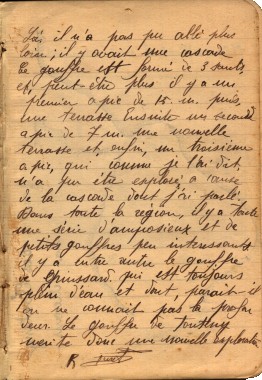 il n'a pas pu allé plus
loin; il y avait une cascade
Le gouffre est formé de 3 sauts
et peut-être plus il y a un
premier a pic de 15 m. puis
une terrasse Ensuite un second
a pic de 7 m. une nouvelle
terrasse et enfin, un troisième
a pic, qui comme je l'ai dit
n'a pu être exploré a cause
de la cascade dont j'ai parlé.
Dans toute la region, il y a toute
une série d'amposieux et de
petits gouffres peu interessants
il y a entre autre le gouffre
de qui est toujours
plein d'eau et dont, parait-il
on ne connait pas la profon
deur. Le gouffre de
merite donc une nouvelle exploration
R